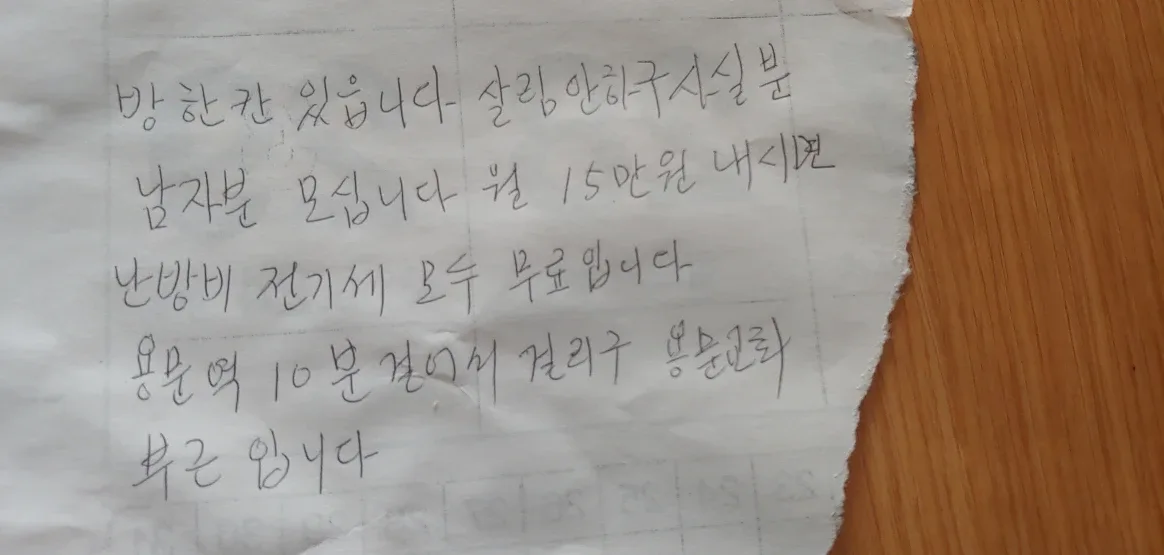 방 한칸 있읍니다 살림안하구사실분
남자분 모십니다 월 15만원 내시면
난방비 전기세 모두 무료입니다
용문역 10분 걸어서 걸리구 용문교회
부근 입니다